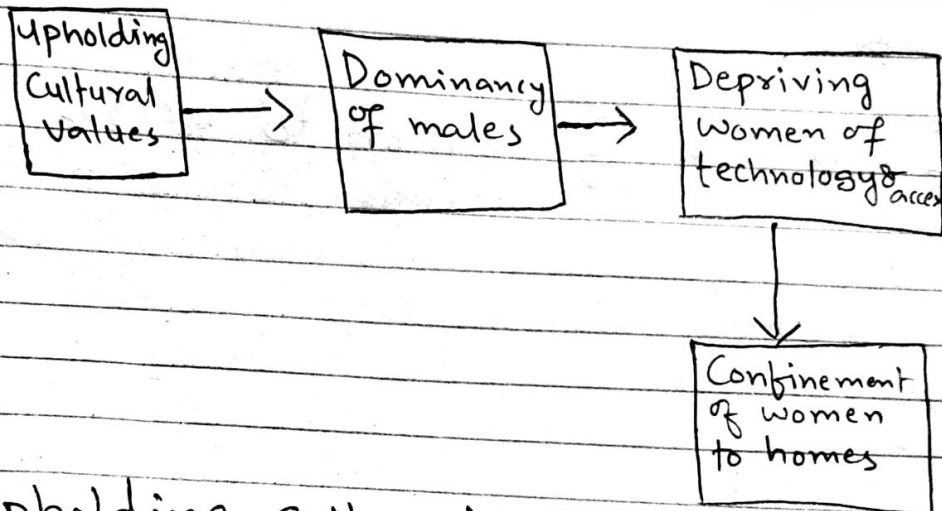 Upholding
Cultural
Values
Dominancy
of males
Depriving
women of
technology &
Confinement
of women
to homes